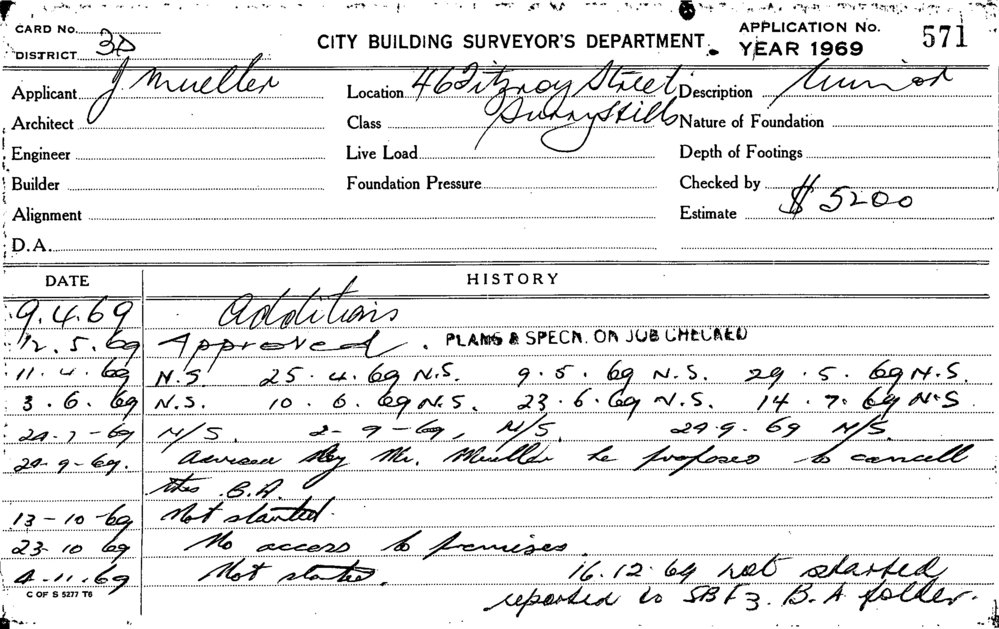 CARD No. APPLICATION No. 571
DISTRICT 3D CITY BUILDING SURVEYOR'S DEPARTMENT. YEAR 1969
Applicant J Mueller Location 46 Fitzroy Street Description
Surry Hills
Architect Class Nature of Foundation
Engineer Live Load Depth of Footings
Builder Foundation Pressure Checked by
Alignment Estimate $ 5200
D.A.
DATE HISTORY
9.4.69 Additions
12.5.69 Approved. PLANS & SPECN. ON JOB CHECKED
11.4.69 N.S. 25.4.69 N.S. 9.5.69 N.S. 29.5.69 N.S.
3.6.69 N.S. 10.6.69 N.S. 23.6.69 N.S. 14.7.69 N.S
29-7-69 N/S. 2-9-69, N/S. 29.9.69 N/S.
29-9-69. Advised by Mr. Mueller he proposes to cancell
this B.A.
13-10-69 Not started.
23-10 69 No access to premises.
4-11.69 Not started. 16.12.69 not started
C OF S 5277 T6 reported to B.A folder.